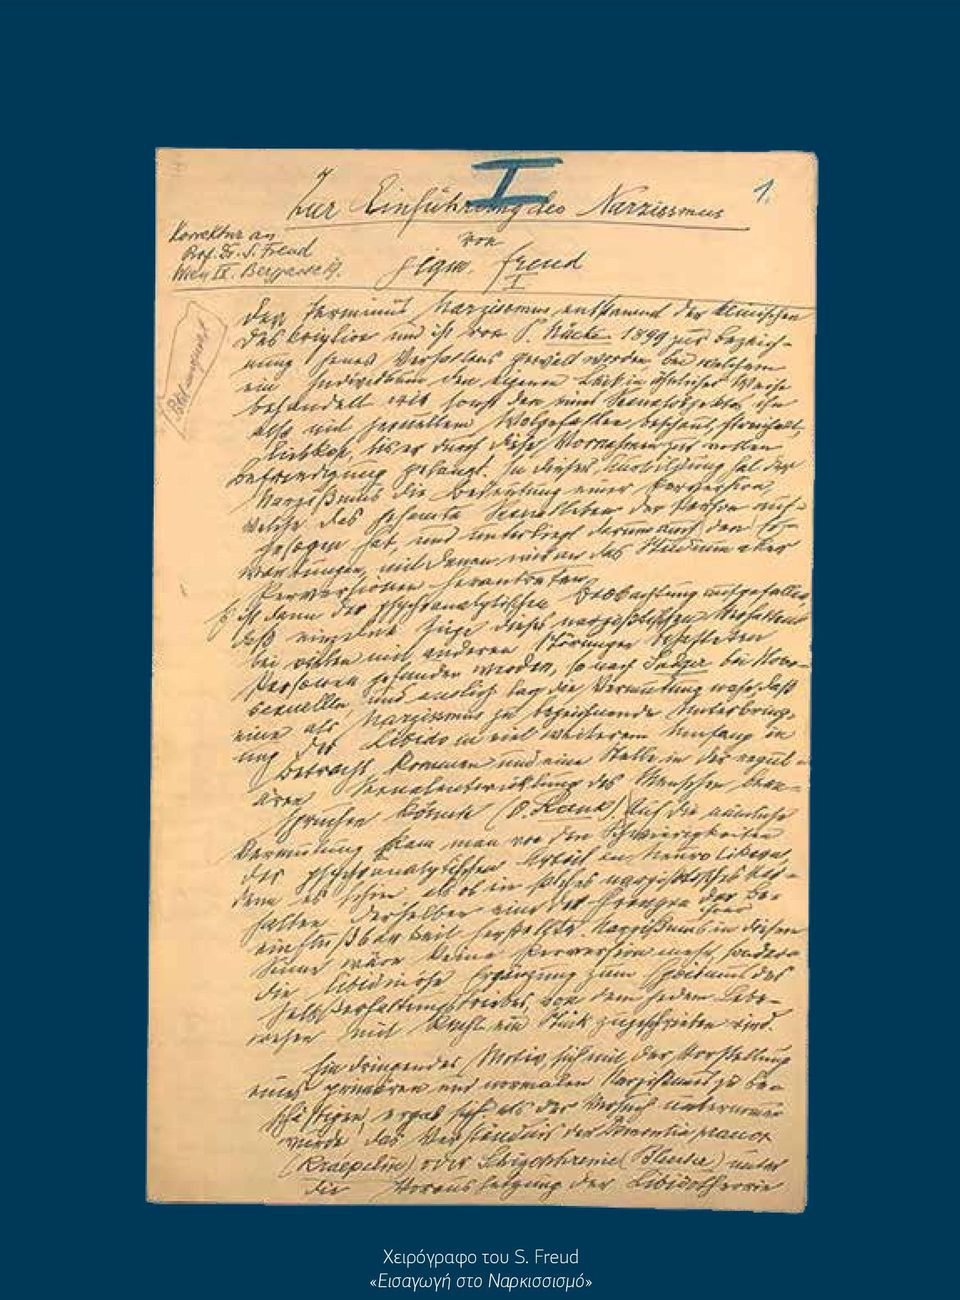 I
1.
Zur Einführung des Narzissmus
von
Sigm. Freud
Korrektur an
Prof. Dr. S. Freud
Wien IX. Berggasse 19.
I
Der Terminus Narzissmus entstammt der klinischen
Deskription und ist von P. Näcke 1899 zur Bezeich-
nung jenes Verhaltens gewält worden bei welchem
ein Individuum den eigenen Leib in änlicher Weise
behandelt wie sonst den eines Sexualobjekts, ihn
also mit sexuellem Wolgefallen beschaut, streichelt,
liebkost, bis er durch diese Vornahmen zur vollen
Befriedigung gelangt. In dieser Ausbildung hat der
Narzißmus die Bedeutung einer Perversion,
welche das gesamte Sexualleben der Person auf-
gesogen hat, und unterliegt darum auch den Er-
wartungen, mit denen wir an das Studium aller
Perversionen herantreten.
Es ist dann der psychoanalytischen Beobachtung aufgefallen,
daß einzelne Züge dieses narzißtischen Verhaltens
bei vielen mit anderen Störungen behafteten
Personen gefunden werden, so nach Sadger bei Homo-
sexuellen, und endlich lag die Vermutung nahe, daß
eine als Narzissmus zu bezeichnende Unterbring-
ung der Libido in viel weiterem Umfang in
Betracht kommen und eine Stelle in der regul-
ären Sexualentwicklung des Menschen bean-
spruchen könnte (O. Rank). Auf die nämliche
Vermutung kam man von den Schwierigkeiten
der psychoanalytischen Arbeit an Neurotikern,
denn es schien als ob ein solches narzißtisches Ver-
halten derselben eine der Grenzen ihrer Be-
einflußbarkeit herstellte. Narzißmus in diesem
Sinne wäre keine Perversion mehr, sondern
die libidinöse Ergänzung zum Egoismus des
Selbsterhaltungstriebes, von dem jedem Lebe-
wesen mit Recht ein Stück zugeschrieben wird.
Ein dringendes Motiv, sich mit der Vorstellung
eines primären und normalen Narzißmus zu be-
schäftigen, ergab sich als der Versuch unternommen
wurde, das Verständnis der Dementia praecox
(Kraepelin) oder Schizophrenie (Bleuler) unter
die Voraussetzung der Libidotheorie
Χειρόγραφο του S. Freud
«Εισαγωγή στο Ναρκισσισμό»